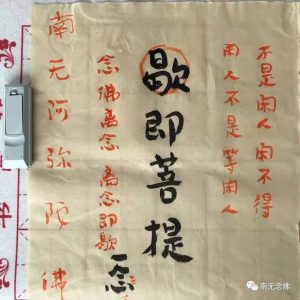 不是闲人闲不得
闲人不是等闲人
歇即菩提
念佛离念 离念即歇
一念
南无阿弥陀佛
南无念佛